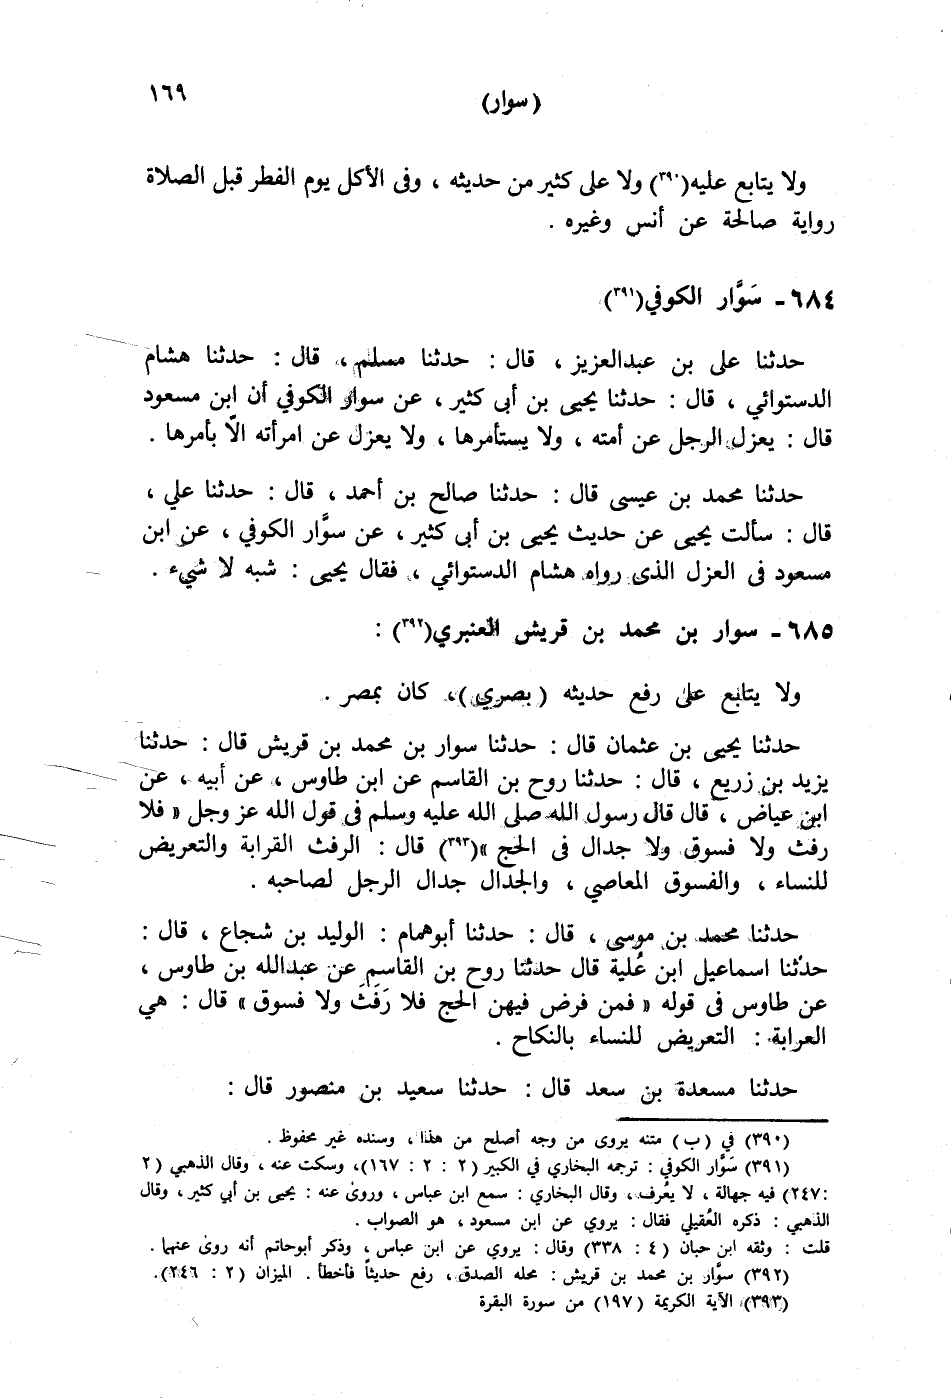 (سوار)
١٦٩
ولا يتابع عليه(٣٩٠) ولا على كثير من حديثه ، وفى الأكل يوم الفطر قبل الصلاة
رواية صالحة عن أنس وغيره .
٦٨٤ - سَوَّار الكوفي(٣٩١)
حدثنا على بن عبدالعزيز ، قال : حدثنا مسلم ، قال : حدثنا هشام
الدستوائي ، قال : حدثنا يحيى بن أبى كثير ، عن سوار الكوفي أن ابن مسعود
قال : يعزل الرجل عن أمته ، ولا يستأمرها ، ولا يعزل عن امرأته الاّ بأمرها .
حدثنا محمد بن عيسى قال : حدثنا صالح بن أحمد ، قال : حدثنا علي ،
قال : سألت يحيى عن حديث يحيى بن أبى كثير ، عن سوَّار الكوفي ، عن ابن
مسعود فى العزل الذى رواه هشام الدستوائي ، فقال يحيى : شبه لا شيء .
٦٨٥ - سوار بن محمد بن قريش العنبري(٣٩٢) :
ولا يتابع على رفع حديثه (بصري)، كان بمصر .
حدثنا يحيى بن عثمان قال : حدثنا سوار بن محمد بن قريش قال : حدثنا
يزيد بن زريع ، قال : حدثنا روح بن القاسم عن ابن طاوس ، عن أبيه ، عن
ابن عياض ، قال قال رسول الله صلى الله عليه وسلم فى قول الله عز وجل « فلا
رفث ولا فسوق ولا جدال فى الحج »(٣٩٣) قال : الرفث القرابة والتعريض
للنساء ، والفسوق المعاصي ، والجدال جدال الرجل لصاحبه .
حدثنا محمد بن موسى ، قال : حدثنا أبوهمام : الوليد بن شجاع ، قال :
حدثنا اسماعيل ابن عُلية قال حدثنا روح بن القاسم عن عبدالله بن طاوس ،
عن طاوس فى قوله « فمن فرض فيهن الحج فلا رَفَثَ ولا فسوق » قال : هي
العرابة : التعريض للنساء بالنكاح .
حدثنا مسعدة بن سعد قال : حدثنا سعيد بن منصور قال :
(٣٩٠) في (ب) متنه يروى من وجه أصلح من هذا ، وسنده غير محفوظ .
(٣٩١) سَوَّار الكوفي : ترجمه البخاري في الكبير (٢ : ٢ : ١٦٧)، وسكت عنه ، وقال الذهبي (٢
:٢٤٧) فيه جهالة ، لا يعُرف ، وقال البخاري : سمع ابن عباس ، وروى عنه : يحيى بن أبي كثير ، وقال
الذهبي : ذكره العُقيلي فقال : يروي عن ابن مسعود ، هو الصواب .
قلت : وثقه ابن حبان (٤ : ٣٣٨) وقال : يروي عن ابن عباس ، وذكر أبوحاتم أنه روى عنهما .
(٣٩٢) سوَّار بن محمد بن قريش : محله الصدق ، رفع حديثاً فأخطأ . الميزان (٢ : ٢٤٦).
(٣٩٣) الآية الكريمة (١٩٧) من سورة البقرة